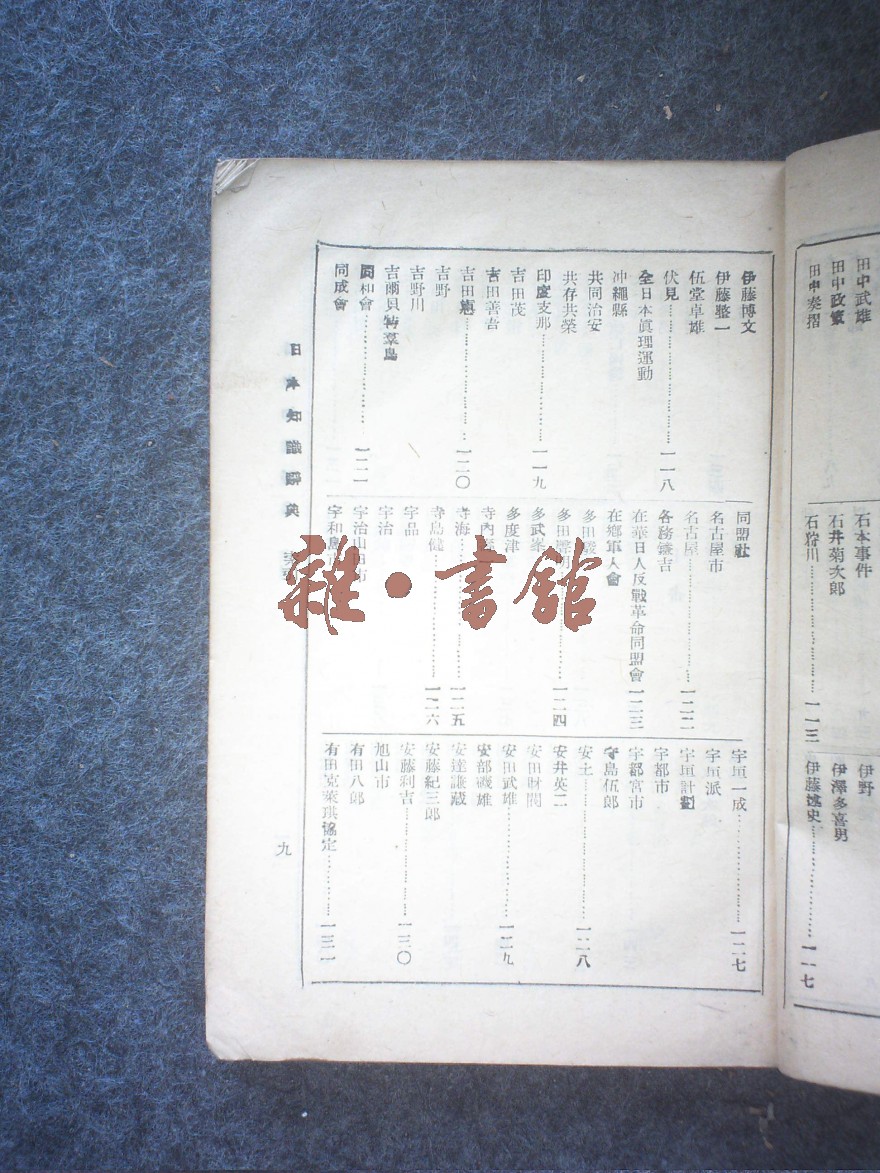 田中武雄
田中政策
田中奏摺
石本事件
石井菊次郎
石狩川…………一一三
伊野
伊澤多喜男
伊藤述史…………一一七
伊藤博文
伊藤整一
伍堂卓雄
伏見…………一一八
全日本眞理運動
冲繩縣
共同治安
共存共榮
印度支那…………一一九
吉田茂
吉田善吾
吉田悳…………一二〇
吉野
吉野川
吉爾貝特羣島
同和會…………一二一
同成會
同盟社
名古屋市
名古屋…………一二二
各務鎌吉
在華日人反戰革命同盟會
一二三
在鄉軍人會
多田
多田…………一二四
多武峯
多度津
寺內
寺海…………一二五
寺島健…………一二六
宇品
宇治
宇治山田市
宇和島
宇垣一成…………一二七
宇垣派
宇垣計劃
宇都市
宇都宮市
宇島伍郎
安土…………一二八
安井英二
安田財閥
安田武雄…………一二九
安部磯雄
安達謙藏
安藤紀三郎
安藤利吉…………一三〇
旭山市
有田八郎
有田克萊琪協定…………一三一
日本知識辭典
九
雜·書館